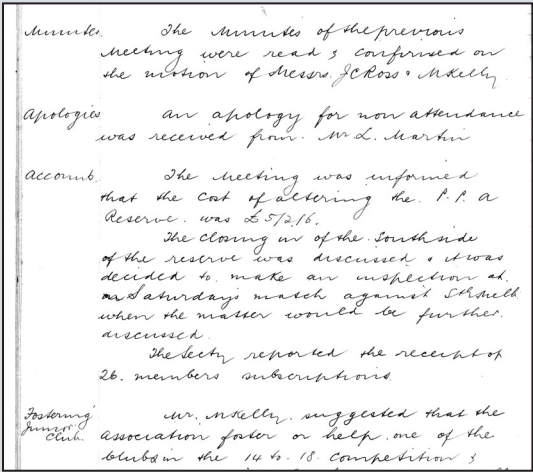 Minutes. The Minutes of the previous
Meeting were read & confirmed on
the motion of Messrs. J C Ross & McKelly.
Apologies An apology for non attendance
was received from Mr L. Martin
Accounts. The Meeting was informed
that the cost of altering the P. P. A
Reserve. was £5/2/6.
The closing in of the Southside
of the reserve was discussed & it was
decided to make an inspection at
Saturdays match against
when the matter would be further.
discussed.
The Secty reported the receipt of
26. members subscriptions.
Fostering Mr. McKelly. suggested that the
Junior association foster or help one of the
Club. Clubs in the 14 to 18. Competition &